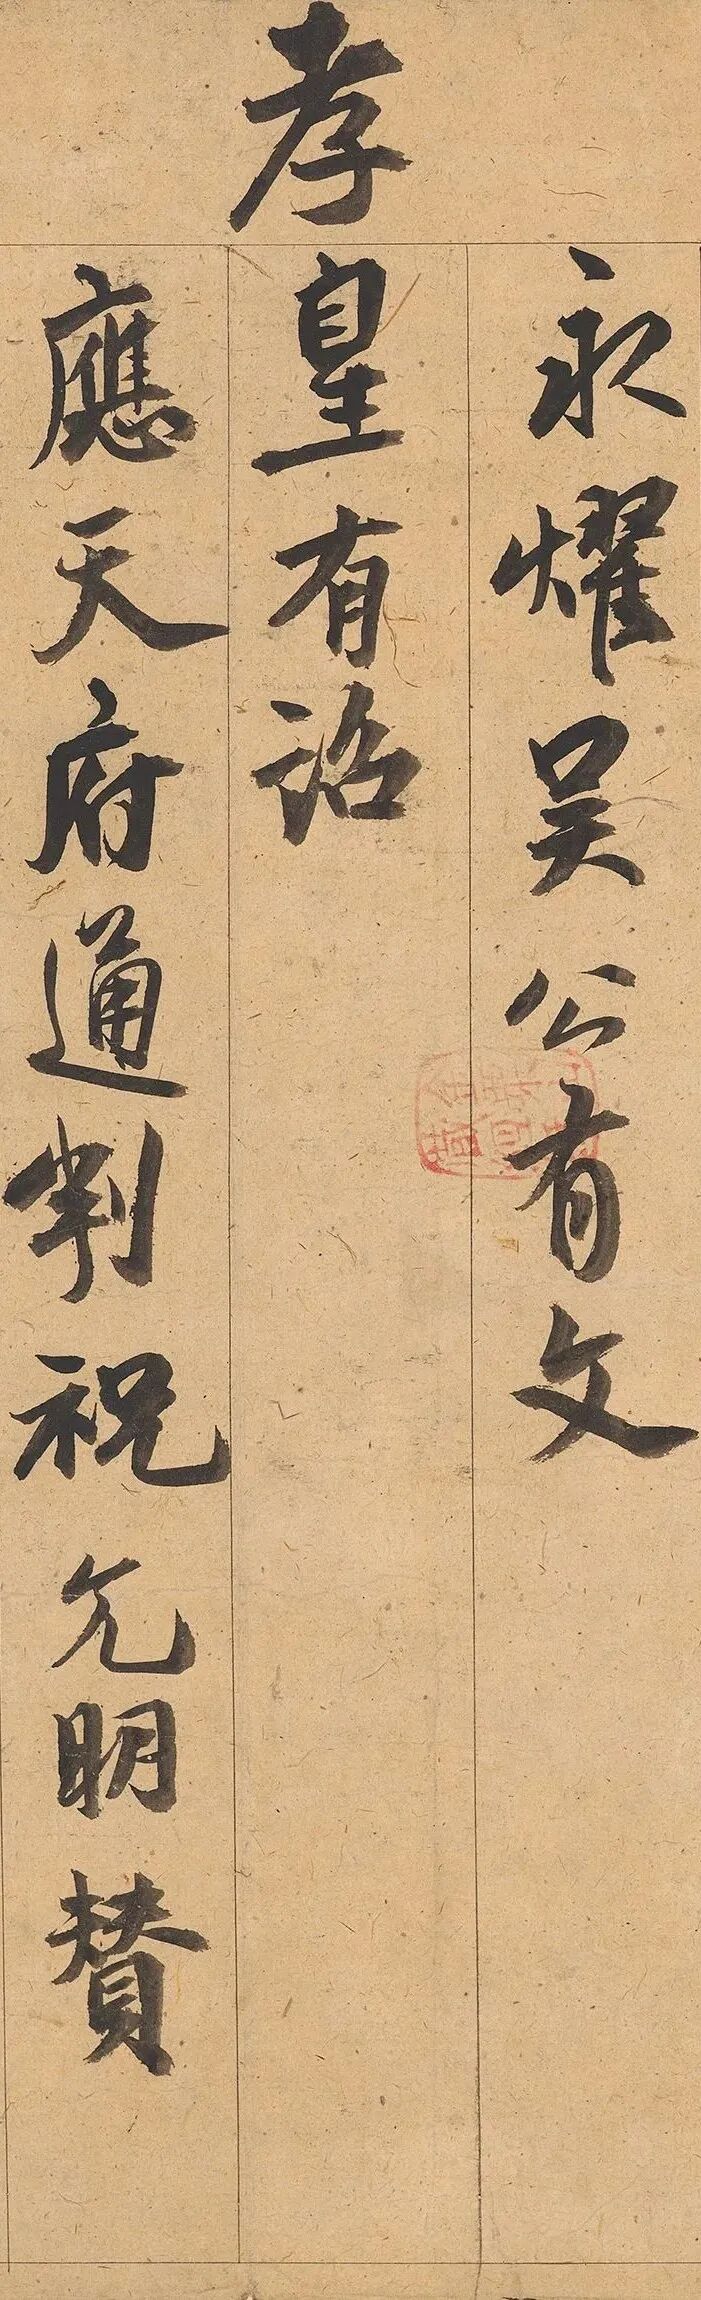 永耀吴公有文
孝皇有詔
應天府通判祝允明賛